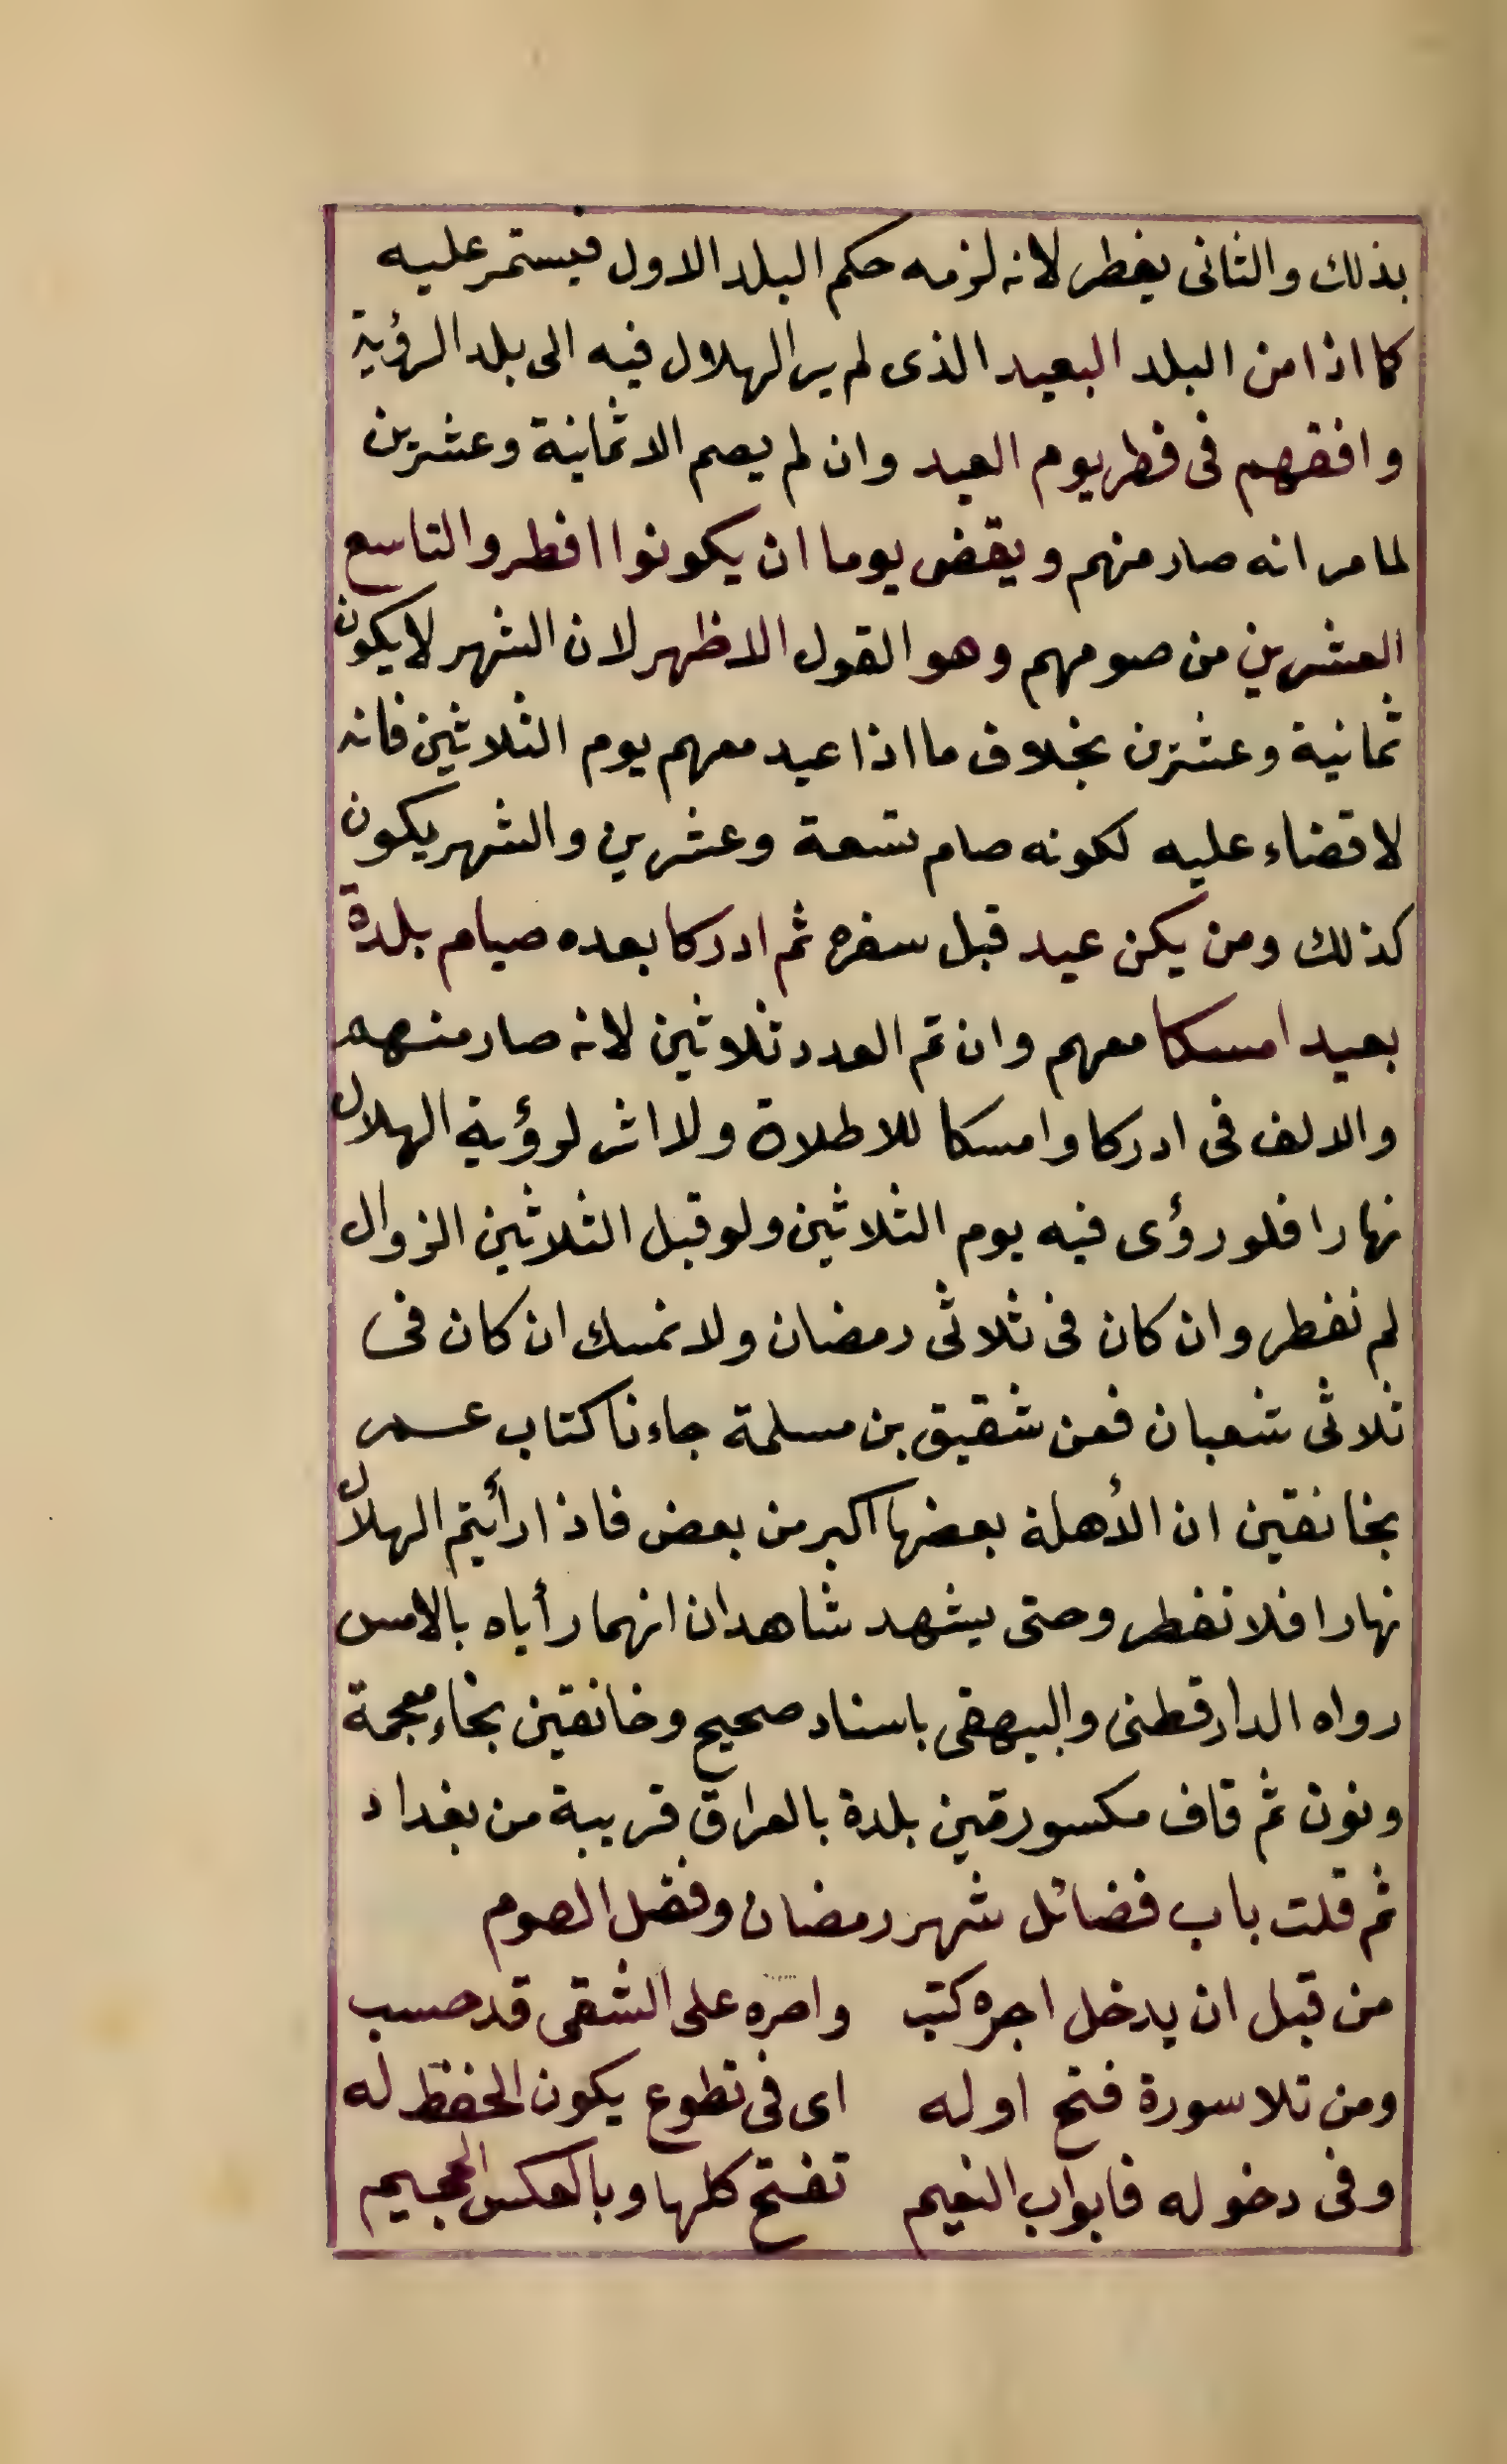 بذلك والثانى يفطر لانه لزمه حكم البلد الاول فيستمر عليه
كما اذا من البلد البعيد الذى لم ير الهلال فيه الى بلد الرؤية
وافقهم فى فطر يوم العيد وان لم يصم الا ثمانية وعشرين
لما مر انه صار منهم ويقض يوما ان يكونوا افطروا التاسع
العشرين من صومهم وهو القول الاظهر لان الشهر لا يكون
ثمانية وعشرين بخلاف ما اذا عيد معهم يوم الثلاثين فانه
لا قضاء عليه لكونه صام تسعة وعشرين والشهر يكون
كذلك ومن يكن عيد قبل سفره ثم ادركا بعده صيام بلدة
بعيد امسكا معهم وان تم العدد ثلاثين لانه صار منهم
والالف فى ادركا وامسكا للاطلاق ولا اثر لرؤية الهلال
نهارا فلو رؤى فيه يوم الثلاثين ولو قبل الثلاثين الزوال
لم نفطر وان كان فى ثلاثى رمضان ولا نمسك ان كان فى
ثلاثى شعبان فعن شقيق بن مسلمة جاءنا كتاب عمر
بخانقين ان الأهلة بعضها اكبر من بعض فاذا رأيتم الهلال
نهارا فلا تفطروا حتى يشهد شاهدان انهما رأياه بالامس
رواه الدارقطنى والبيهقى باسناد صحيح وخانقين بخاء معجمة
ونون ثم قاف مكسورتين بلدة بالعراق قريبة من بغداد
ثم قلت باب فضائل شهر رمضان وفضل الصوم
من قبل ان يدخل اجره كتب واصره على الشقى قد حسب
ومن تلا سورة فتح اوله اى فى تطوع يكون الحفظ له
وفى دخوله فابواب النعيم تفتح كلها وبالعكس الجحيم